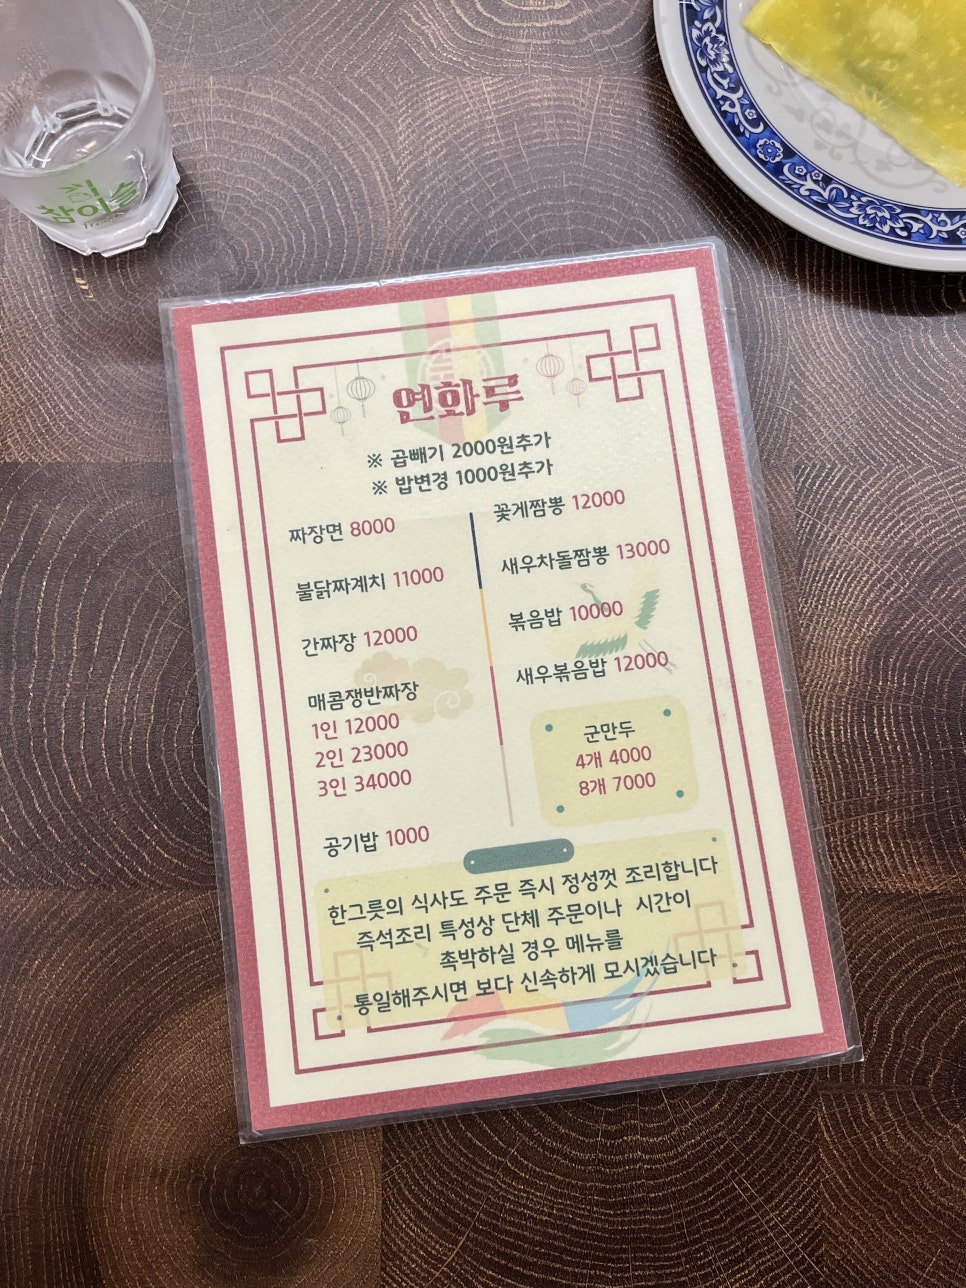 참이슬
연화루
※ 곱빼기 2000원추가
※ 밥변경 1000원추가
짜장면 8000
불닭짜계치 11000
간짜장 12000
매콤쟁반짜장
1인 12000
2인 23000
3인 34000
공기밥 1000
꽃게짬뽕 12000
새우차돌짬뽕 13000
볶음밥 10000
새우볶음밥 12000
군만두
4개 4000
8개 7000
한그릇의 식사도 주문 즉시 정성껏 조리합니다
즉석조리 특성상 단체 주문이나 시간이
촉박하실 경우 메뉴를
통일해주시면 보다 신속하게 모시겠습니다